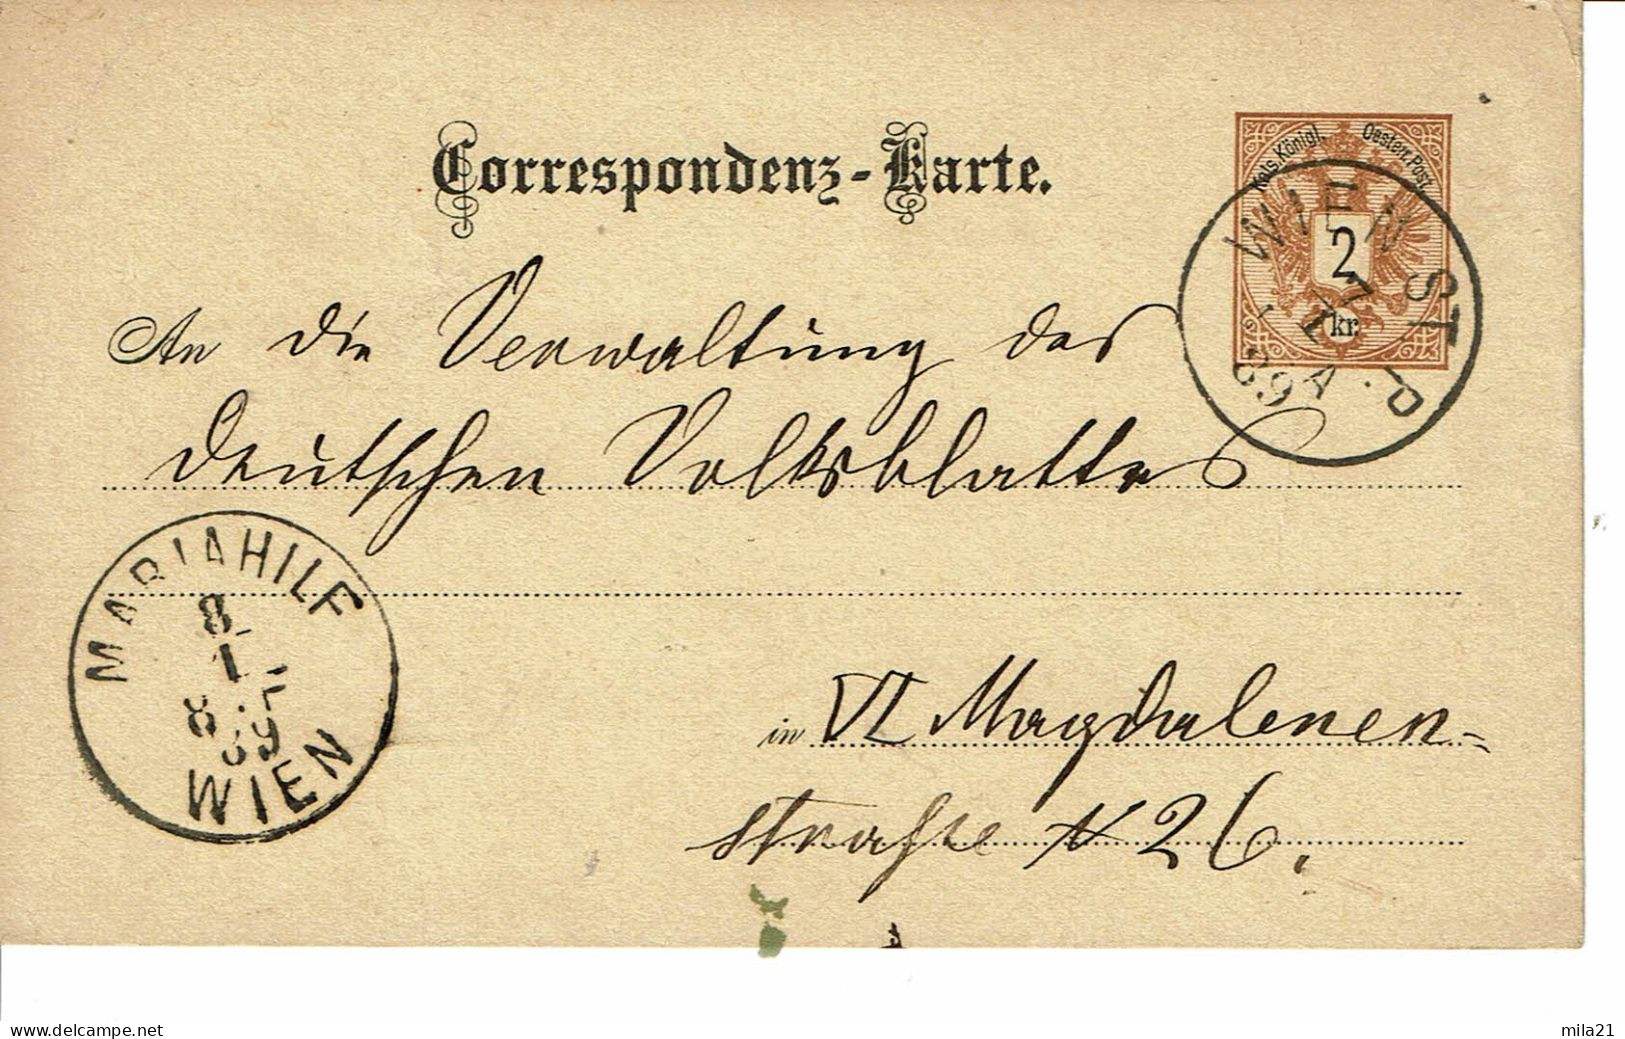 Correspondenz-Karte.
Kais. Königl. Oesterr. Post.
2
kr.
WIEN ST. P.
7
1
89 A
An die Verwaltung des
deutschen Volksblattes
MARIAHILF
8
1
8 - F
89
WIEN
in VI Magdalenen-
straße N 26.
www.delcampe.net
mila21